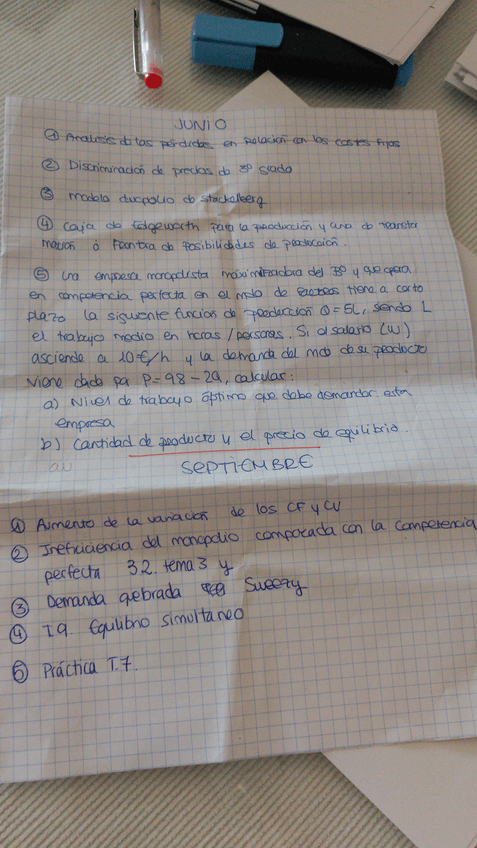 JUNIO
① Análisis de las pérdidas en relación con los costes fijos
② Discriminación de precios de 3º grado
③ modelo duopolio de Stackelberg
④ Caja de Edgeworth para la producción y curva de transfor
mación o frontera de posibilidades de producción.
⑤ Una empresa monopolista maximizadora del Bº y que opera
en competencia perfecta en el mdo de factores tiene a corto
plazo la siguiente función de producción Q = 5L, siendo L
el trabajo medio en horas/personas. Si el salario (w)
asciende a 10€/h y la demanda del mdo de su producto
viene dado por P=98-2Q, calcular:
a) Nivel de trabajo óptimo que debe demandar esta
empresa
b) Cantidad de producto y el precio de equilibrio.
SEPTIEMBRE
① Aumento de la variación de los CF y CV
② Ineficiencia del monopolio comparada con la competencia
perfecta 3.2. tema 3 y
③ Demanda quebrada Sweezy
④ T.9. Equilibrio simultaneo
⑤ Práctica T.7.